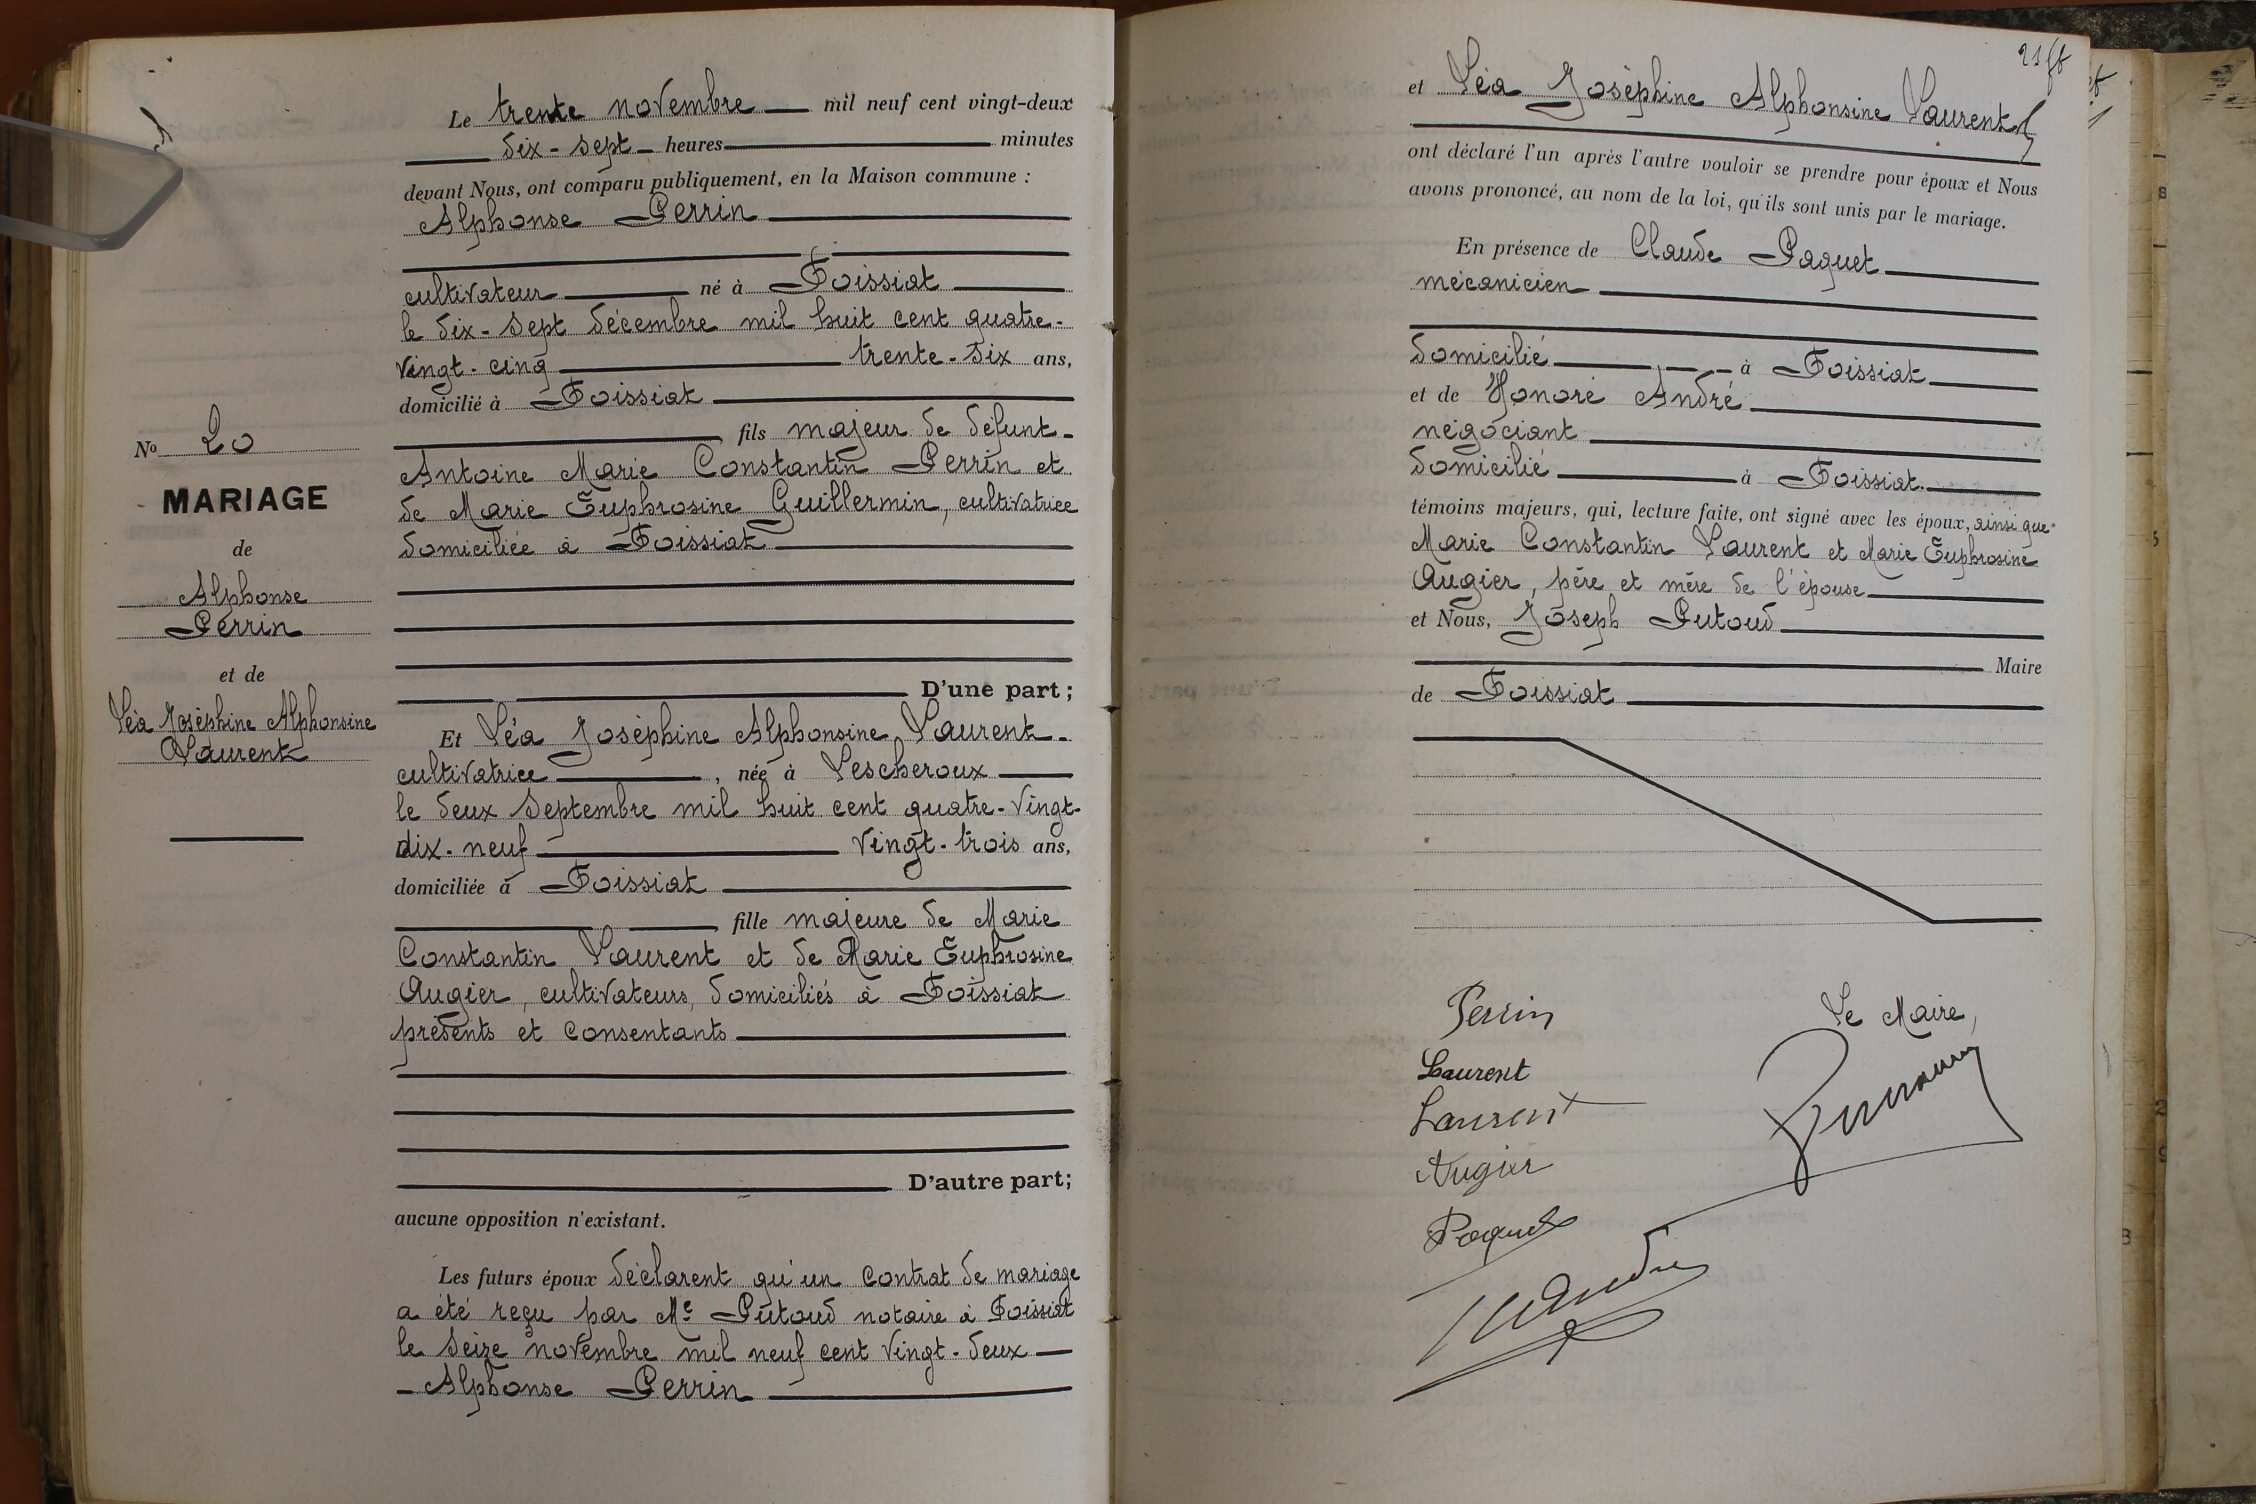 Le trente novembre mil neuf cent vingt-deux
dix-sept heures minutes
devant Nous, ont comparu publiquement, en la Maison commune :
Alphonse Perrin
cultivateur né à Foissiat
le dix-sept décembre mil huit cent quatre-
vingt-cinq trente-six ans,
domicilié à Foissiat
fils majeur de défunt
Antoine Marie Constantin Perrin et
de Marie Euphrosine Guillermin, cultivatrice
domiciliée à Foissiat
D'une part ;
No 20
MARIAGE
de
Alphonse
Perrin
et de
Léa Joséphine Alphonsine
Laurent
Et Léa Joséphine Alphonsine Laurent
cultivatrice, née à Lescheroux
le deux septembre mil huit cent quatre-vingt-
dix-neuf vingt-trois ans,
domiciliée à Foissiat
fille majeure de Marie
Constantin Laurent et de Marie Euphrosine
Augier, cultivateurs, domiciliés à Foissiat
présents et consentants
D'autre part;
aucune opposition n'existant.
Les futurs époux déclarent qu'un contrat de mariage
a été reçu par Me Putoud notaire à Foissiat
le seize novembre mil neuf cent vingt-deux
Alphonse Perrin
et Léa Joséphine Alphonsine Laurent
ont déclaré l'un après l'autre vouloir se prendre pour époux et Nous
avons prononcé, au nom de la loi, qu'ils sont unis par le mariage.
En présence de Claude Paquet
mécanicien
domicilié à Foissiat
et de Honoré André
négociant
domicilié à Foissiat.
témoins majeurs, qui, lecture faite, ont signé avec les époux, ainsi que
Marie Constantin Laurent et Marie Euphrosine
Augier, père et mère de l'épouse
et Nous, Joseph Putoud
Maire
de Foissiat
Perrin
Le Maire,
Laurent
Laurent
Augier
Paquet
André